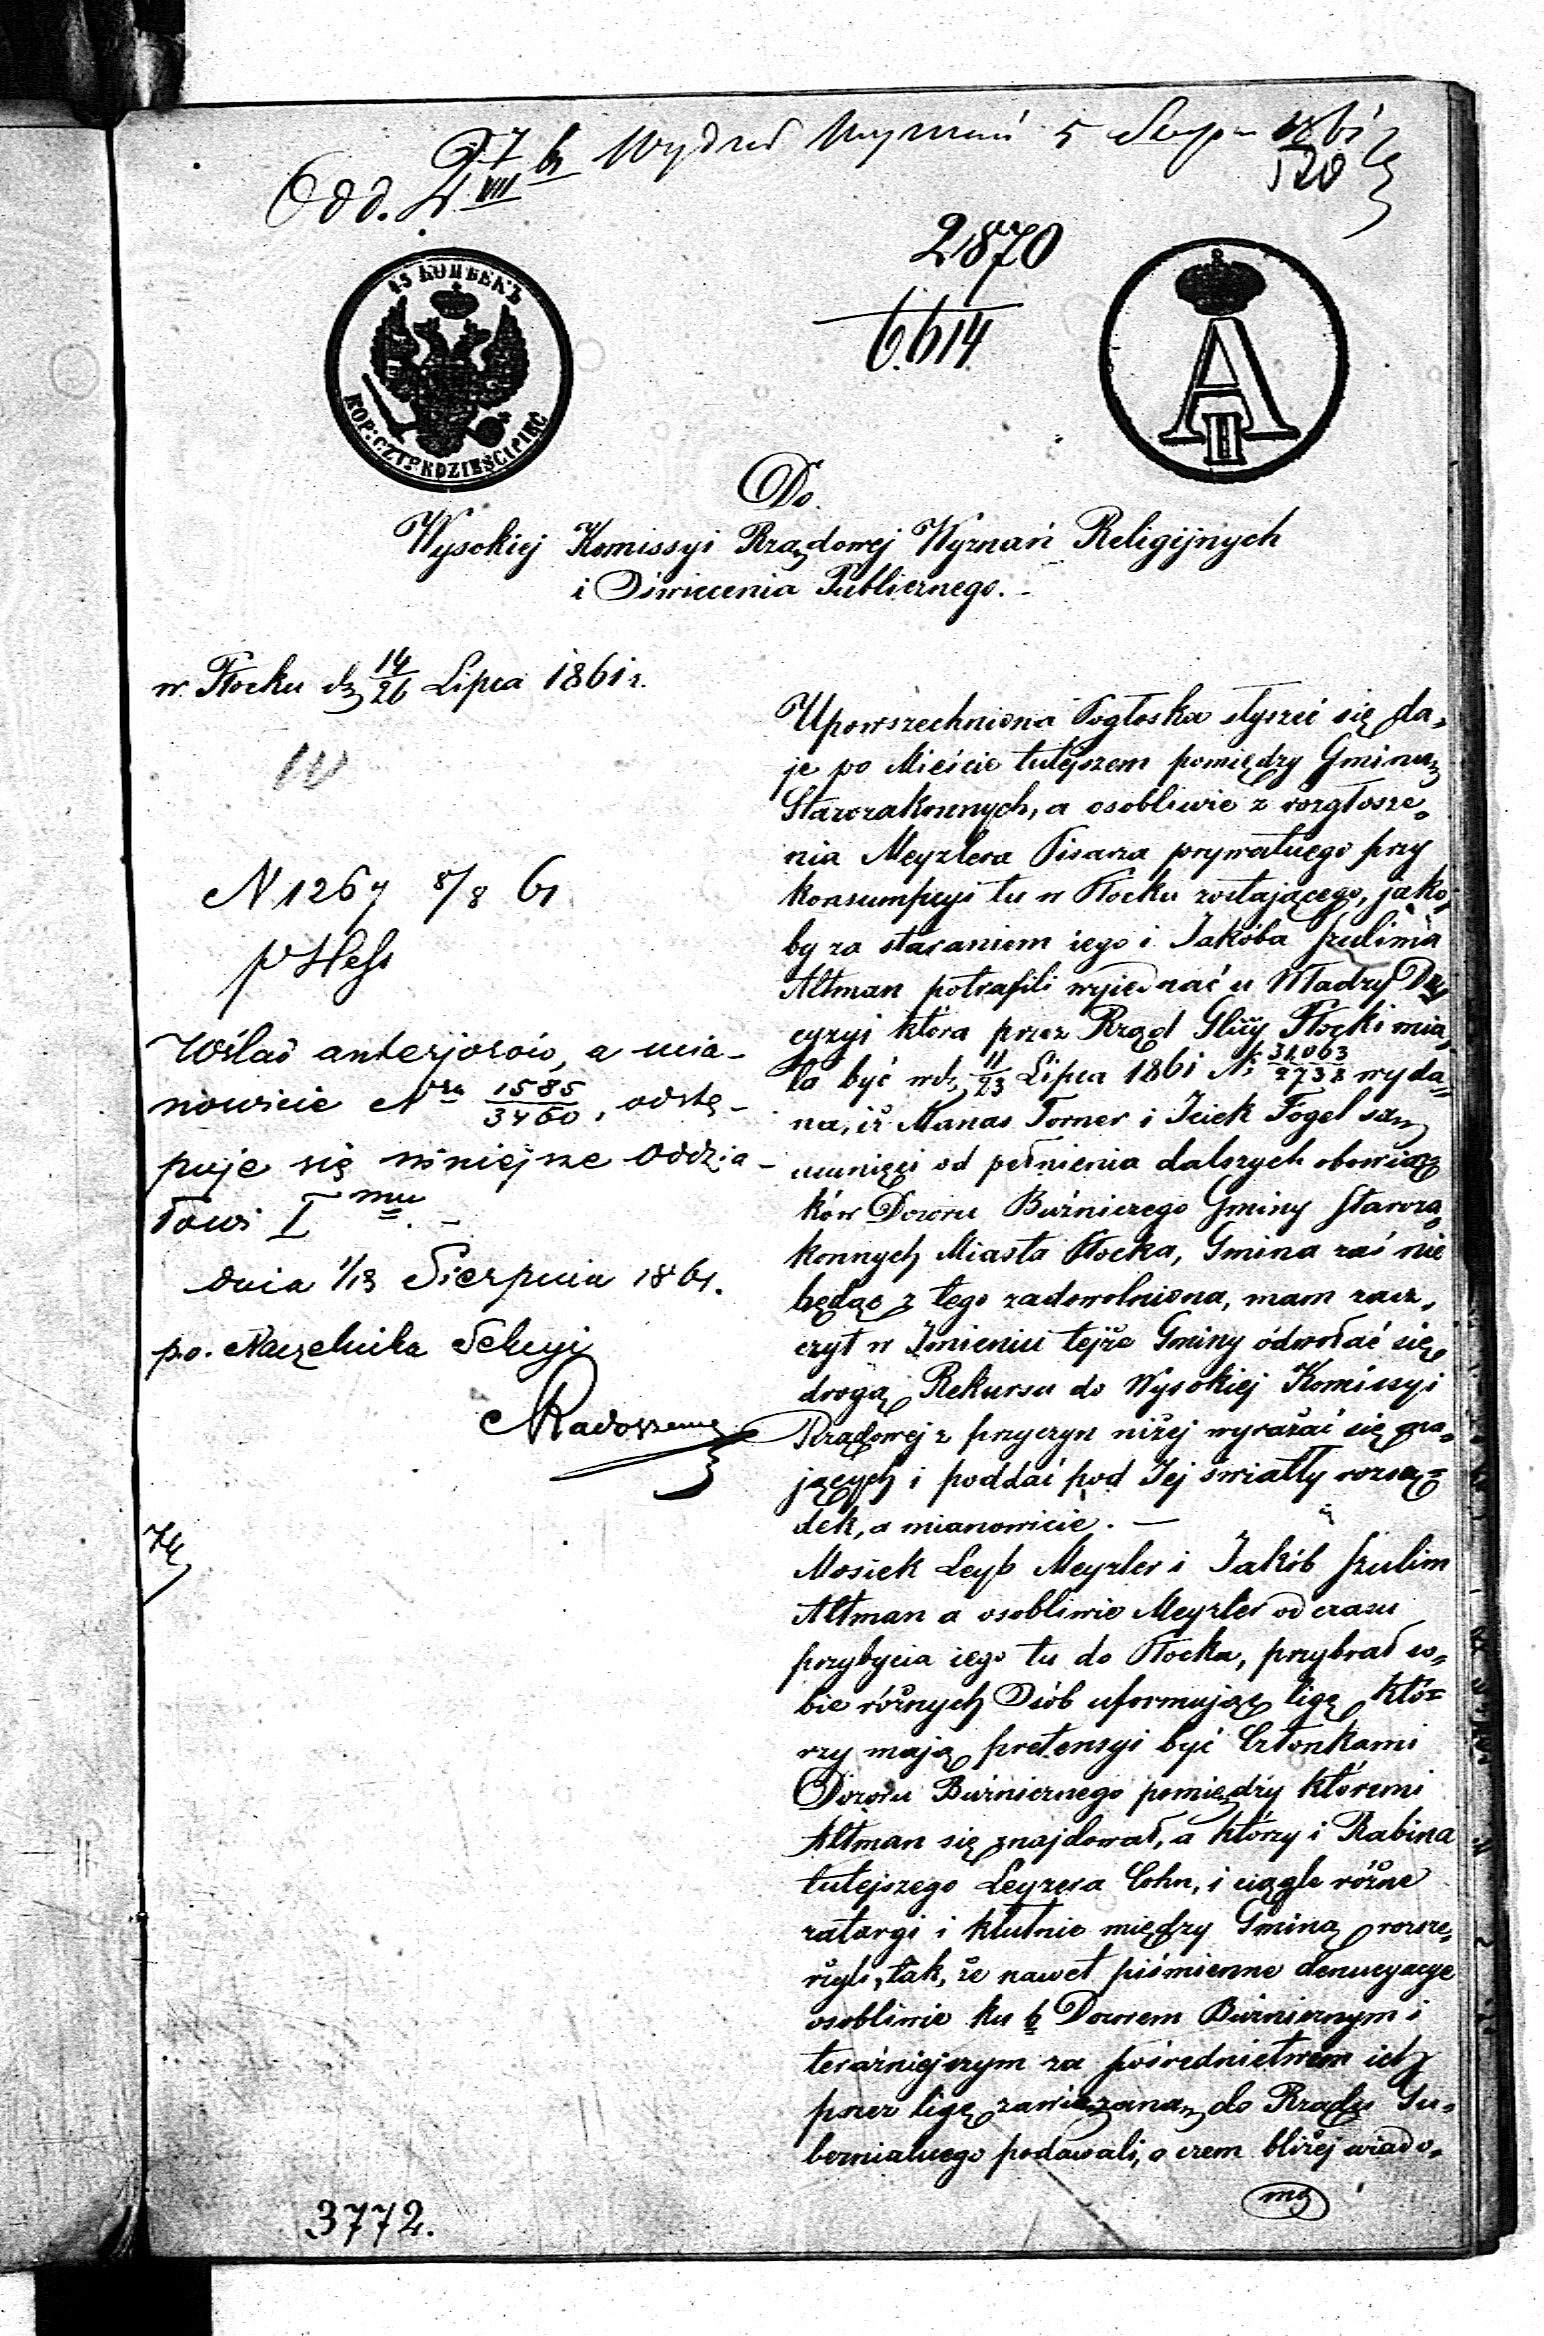 Odd. 2 7/VIII 61 Wydział Wyznań 5 Sierp 1861
520
2870
6614
45 КОПѢЕКЪ
KOP: CZTERDZIEŚCI PIĘĆ
A II
Do
Wysokiej Komissyi Rządowej Wyznań Religijnych
i Oświecenia Publicznego. -
w Płocku d. 14/26 Lipca 1861 r.
N 1267 8/8 61
p Hess
W ślad anterjorów, a mia-
nowicie Nra 1585/3460, odstę-
puje się niniejsze Oddzia-
łowi I mu. -
dnia 1/13 Sierpnia 1861.
p.o. Naczelnika Sekcyi
Upowszechniona Pogłoska słyszeć się da„
je po Mieście tutejszem pomiędzy Gminą
Starozakonnych, a osobliwie z rozgłosze„
nia Meyzlera Pisarza prywatnego przy
konsumpcyi tu w Płocku zostającego, jako„
by za staraniem iego i Jakóba Szulima
Altman potrafili wyjednać u Władzy De„
cyzyi która przez Rząd Glny Płocki mia„
ła być w d. 11/23 Lipca 1861 N. 31,063/2738 wyda„
na, iż Manas Torner i Iciek Fogel są
usunięci od pełnienia dalszych obowiąz„
ków Dozoru Bużniczego Gminy Staroza„
konnych Miasta Płocka, Gmina zaś nie
będąc z tego zadowolniona, mam zasz„
czyt w Imieniu tejże Gminy odwołać się
drogą Rekursu do Wysokiej Komissyi
Rządowej z przyczyn niżej wyrażać się ma„
jących i poddać pod Jej światły rozsą=
dek, a mianowicie. —
Mosiek Leyb Meyzler i Jakób Szulim
Altman a osobliwie Meyzler od czasu
przybycia iego tu do Płocka, przybrał so„
bie różnych Osób uformując ligę któ=
rzy mają pretensyi być Członkami
Dozoru Bużnicznego pomiędzy któremi
Altman się znajdował, a którzy i Rabina
tutejszego Leyzera Cohn, i ciągle różne
zatargi i kłutnie między Gminą rozsze„
rzyli, tak, że nawet piśmienne denucyacye
osobliwie ku b Dozorem Bużnicznym i
teraźniejszym za pośrednictwem ich
przez ligę zawiązaną do Rządu Gu„
bernialnego podawali, o czem bliżej wiado„
mo
3772.